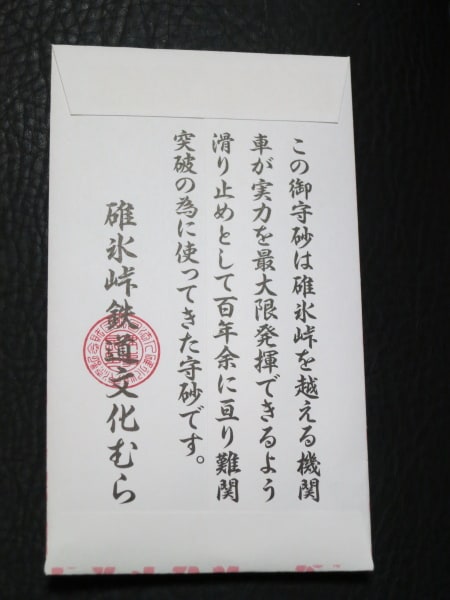 この御守砂は碓氷峠を越える機関
車が実力を最大限発揮できるよう
滑り止めとして百年余に亘り難関
突破の為に使ってきた守砂です。
碓氷峠鉄道文化むら